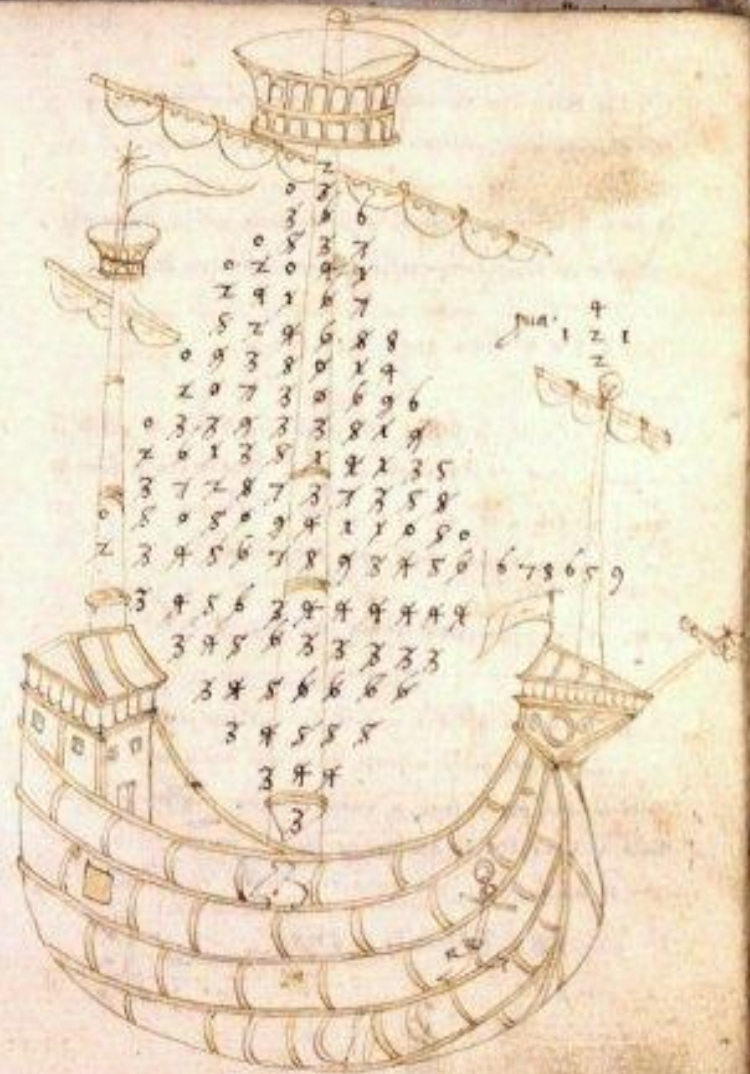 2
0 3
3 6 6
0 8 3 7
0 2 0 9 3
2 9 1 6 7
5 2 9 6 8 8
0 9 3 8 0 1 4
2 0 7 3 0 6 9 6
0 3 3 9 3 3 8 1 9
2 0 1 3 5 1 9 1 3 5
3 7 2 8 7 3 7 3 5 8
0 5 0 5 0 9 4 1 1 0 5 0
2 3 4 5 6 7 8 9 3 4 5 6 | 6 7 8 6 5 9
3 4 5 6 3 4 4 4 4 4
3 4 5 6 3 3 3 3 3
3 4 5 6 6 6 6
3 4 5 5 5
3 4 4
3
4
1 2 1
2